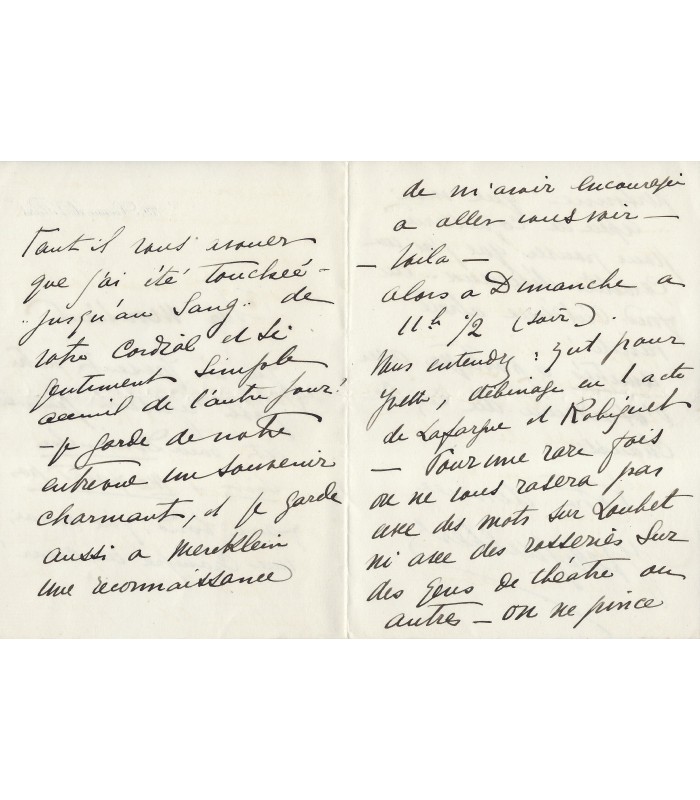 Faut il vous avouer
que j'ai été touchée -
"jusqu'au sang" de
votre cordial et si
gentiment simple
accueil de l'autre jour!
- je garde de notre
entrevue un souvenir
charmant, et je garde
aussi a Mercklein
une reconnaissance
de m'avoir encouragée
a aller vous voir -
- Voila -
alors a Dimanche a
11h 1/2 (soir).
Vous entendrez : Zut pour
Yvette, débinage en 1 acte
de Lafargue et Robiquet
- Pour une rare fois
on ne vous rasera pas
avec des mots sur Loubet
ni avec des rosseries sur
des gens de théatre ou
autres - on ne pince